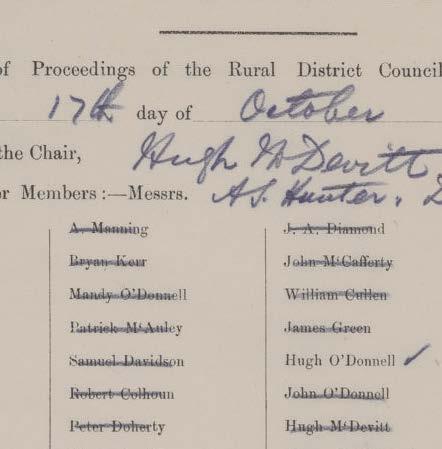 of Proceedings of the Rural District Council
17th day of October
the Chair, Hugh McDevitt
r Members :—Messrs. A.S. Hunter,
A. Manning
Bryan Kerr
Mandy O'Donnell
Patrick McAuley
Samuel Davidson
Robert Colhoun
Peter Doherty
J. A. Diamond
John McCafferty
William Cullen
James Green
Hugh O'Donnell ✓
John O'Donnell
Hugh McDevitt